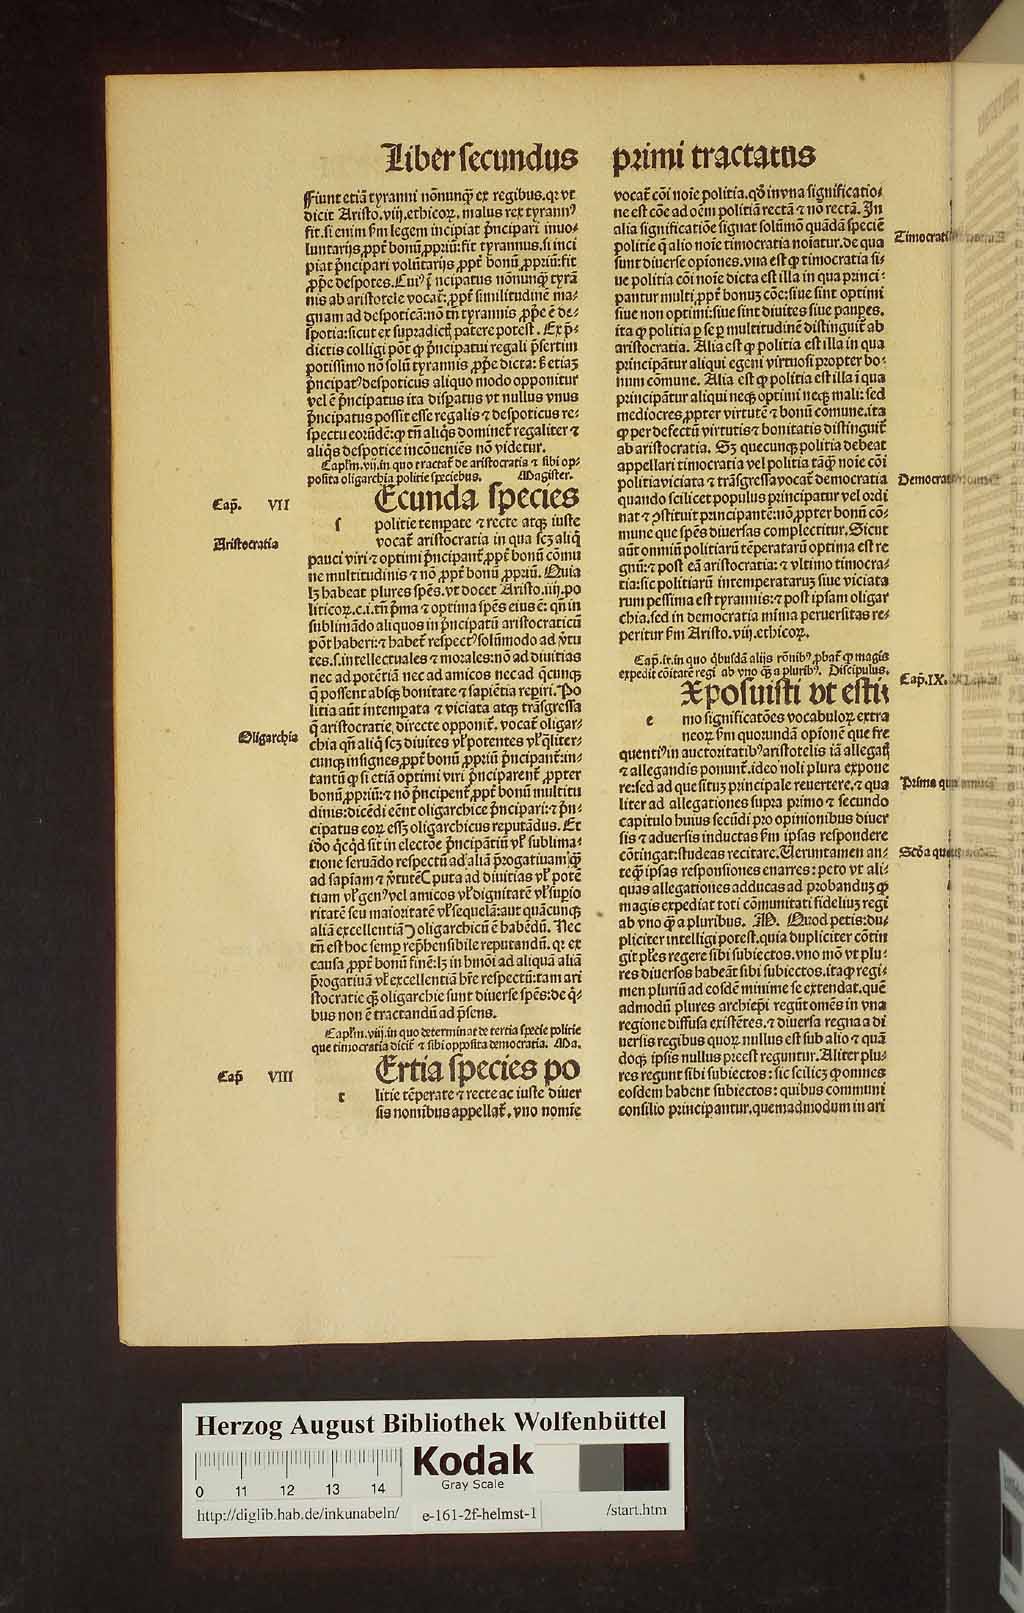 Liber secundus primi tractatus
Fiunt etiã tyranni nõnunqȝ ex regibus. qꝛ vt
dicit Aristo. viij. ethicoꝝ. malus rex tyrannꝰ
fit. si enim ẜm legem incipiat p̃ncipari inuo-
luntarijs ꝓpt̃ bonũ ꝓpriũ: fit tyrannus. si inci
piat p̃ncipari volũtarijs ꝓpt̃ bonũ ꝓpriũ: fit
nis ab aristotele vocat̃: ꝓpt̃ similitudinẽ ma-
gnam ad despoticã: nõ tñ tyrannis ꝓp̃e ẽ de-
spotia: sicut ex supradictꝭ patere potest. Ex p̃-
dictis colligi põt ꝙ p̃ncipatui regali p̃sertim
potissimo nõ solũ tyrannis ꝓp̃e dicta: ß etiaȝ
p̃ncipatꝰ despoticus aliquo modo opponitur
vel ẽ p̃ncipatus ita disꝑatus vt nullus vnus
p̃ncipatus possit esse regalis ⁊ despoticus re-
spectu eorũdẽ: ꝙ tñ aliq̃s dominet̃ regaliter ⁊
aliq̃s despotice incõueniẽs nõ videtur.
Capl̃m. vij. in quo tractat̃ de aristocratia ⁊ sibi op-
posita oligarchia politie speciebus. Magister.
Cap̃. VII
Ecunda species
s politie tempate ⁊ recte atqȝ iuste
Aristocratia
vocat̃ aristocratia in qua scȝ aliq̃
pauci viri ⁊ optimi p̃ncipant̃ ꝓpt̃ bonũ cõmu
ne multitudinis ⁊ nõ ꝓpt̃ bonũ ꝓpriũ. Quia
lȝ habeat plures sp̃es. vt docet Aristo. iiij. po
liticoꝝ. c. i. tñ p̃ma ⁊ optima sp̃es eius ẽ: qñ in
sublimãdo aliquos in p̃ncipatũ aristocraticũ
põt haberi: ⁊ habet̃ respectꝰ solũmodo ad ṽtu
tes. s. intellectuales ⁊ morales: nõ ad diuitias
nec ad potẽtiã nec ad amicos nec ad q̃cunqȝ
q̃ possent absqȝ bonitate ⁊ sapiẽtia reꝑiri. Po
litia aũt intemꝑata ⁊ viciata atqȝ trãsgressa
q̃ aristocratie directe opponit̃. vocat̃ oligar-
Oligarchia
chia qñ aliq̃ scȝ diuites vl̃ potentes vl̃ q̃liter-
cunqȝ insignes ꝓpt̃ bonũ ꝓpriũ p̃ncipant̃: in-
tantũ ꝙ si etiã optimi viri p̃nciparent̃ ꝓpter
bonũ ꝓpriũ: ⁊ nõ p̃ncipent̃ ꝓpt̃ bonũ multitu
dinis: dicẽdi eẽnt oligarchice p̃ncipari: ⁊ p̃n-
cipatus eoꝝ esȝ oligarchicus reputãdus. Et
iõo q̃cq̃d sit in electõe p̃ncipãtiũ vl̃ sublima-
tione seruãdo respectũ ad aliã p̃rogatiuam qȝ
ad sapĩam ⁊ ṽtutẽ (puta ad diuitias vl̃ potẽ
tiam vl̃ genꝰ vel amicos vl̃ dignitatẽ vl̃ suꝑio
ritatẽ seu maioritatẽ vl̃ sequelã: aut quãcunqȝ
aliã excellentiã) oligarchicũ ẽ habẽdũ. Nec
tñ est hoc semꝑ rep̃hensibile reputandũ. qꝛ ex
causa ꝓpt̃ bonũ finẽ: lȝ in hmõi ad aliquã aliã
p̃rogatiuã vl̃ excellentiã hr̃e respectũ: tam ari
stocratie qȝ oligarchie sunt diuerse sp̃es: de q̃-
bus non ẽ tractandũ ad p̃sens.
Capl̃m. viij. in quo determinat de tertia specie politie
que timocratia dicit̃ ⁊ sibi opposita democratia. Ma.
Cap̃ VIII
Ertia species po
t litie tẽperate ⁊ recte ac iuste diuer
sis nomibus appellat̃. vno nomĩe
vocat̃ cõi noĩe politia. qð in vna significatio-
ne est cõe ad oẽm politiã rectã ⁊ nõ rectã. In
alia significatiõe signat solũmõ quãdã speciẽ
politie q̃ alio noĩe timocratia noĩatur. de qua
sunt diuerse opiones. vna est ꝙ timocratia si-
ue politia cõi noĩe dicta est illa in qua princi-
pantur multi ꝓpt̃ bonuȝ cõe: siue sint optimi
siue non optimi: siue sint diuites siue pauꝑes.
ita ꝙ politia ꝑ se ꝑ multitudinẽ distinguit̃ ab
aristocratia. Alia est ꝙ politia est illa in qua
principãtur aliqui egeni virtuosi propter bo-
num cõmune. Alia est ꝙ politia est illa ĩ qua
principãtur aliqui neqȝ optimi neqȝ mali: sed
mediocres ꝓpter virtutẽ ⁊ bonũ cõmune. ita
ꝙ per defectũ virtutis ⁊ bonitatis distinguit̃
ab aristocratia. Sȝ quecunqȝ politia debeat
appellari timocratia vel politia tãqȝ noĩe cõi
politia viciata ⁊ trãsgressa vocat̃ democratia
quando scilicet populus principatur vel ordi
nat ⁊ ꝯstituit principantẽ: nõ ꝓpter bonũ cõ-
mune que sp̃es diuersas complectitur. Sicut
aũt omniũ politiarũ tẽperatarũ optima est re
gnũ: ⁊ post eã aristocratia: ⁊ vltimo timocra-
tia: sic politiarũ intemperataruȝ siue viciata
rum pessima est tyrannis: ⁊ post ipsam oligar
chia. sed in democratia mĩma peruersitas re-
peritur ẜm Aristo. viij. ethicoꝝ.
Cap̃. ix. in quo q̃busdã alijs rõnibꝰ ꝓbat̃ ꝙ magis
expedit cõitatẽ regi ab vno qȝ a pluribꝰ. Discipulus.
Cap̃. IX.
Xposuisti vt esti
e mo significatões vocabuloꝝ extra
neoꝝ ẜm quorundã opionẽ que fre
quentiꝰ in auctoritatibꝰ aristotelis iã allegat̃
⁊ allegandis ponunt̃. ideo noli plura expone
re: sed ad quesituȝ principale reuertere. ⁊ qua
liter ad allegationes supra primo ⁊ secundo
capitulo huius secũdi pro opinionibus diuer
sis ⁊ aduersis inductas ẜm ipsas respondere
cõtingat: studeas recitare. Ueruntamen an-
teqȝ ipsas responsiones enarres: peto vt ali-
quas allegationes adducas ad probanduȝ ꝙ
magis expediat toti cõmunitati fideliuȝ regi
ab vno qȝ a pluribus. M. Quod petis: du-
pliciter intelligi potest. quia dupliciter cõtin
git pl̃es regere sibi subiectos. vno mõ vt plu-
res diuersos habeãt sibi subiectos. ita qȝ regi-
men pluriũ ad eosdẽ minime se extendat. quẽ
admodũ plures archiep̃i regũt omẽs in vna
regione diffusa existẽtes. ⁊ diuersa regna a di
uersis regibus quoꝝ nullus est sub alio ⁊ quã
doqȝ ipsis nullus preest reguntur. Aliter plu-
res regunt sibi subiectos: sic scilicȝ ꝙ omnes
eosdem habent subiectos: quibus communi
consilio principantur. quemadmodum in ari
Herzog August Bibliothek Wolfenbüttel
Kodak
Gray Scale
0 11 12 13 14
http://diglib.hab.de/inkunabeln/ e-161-2f-helmst-1 /start.htm